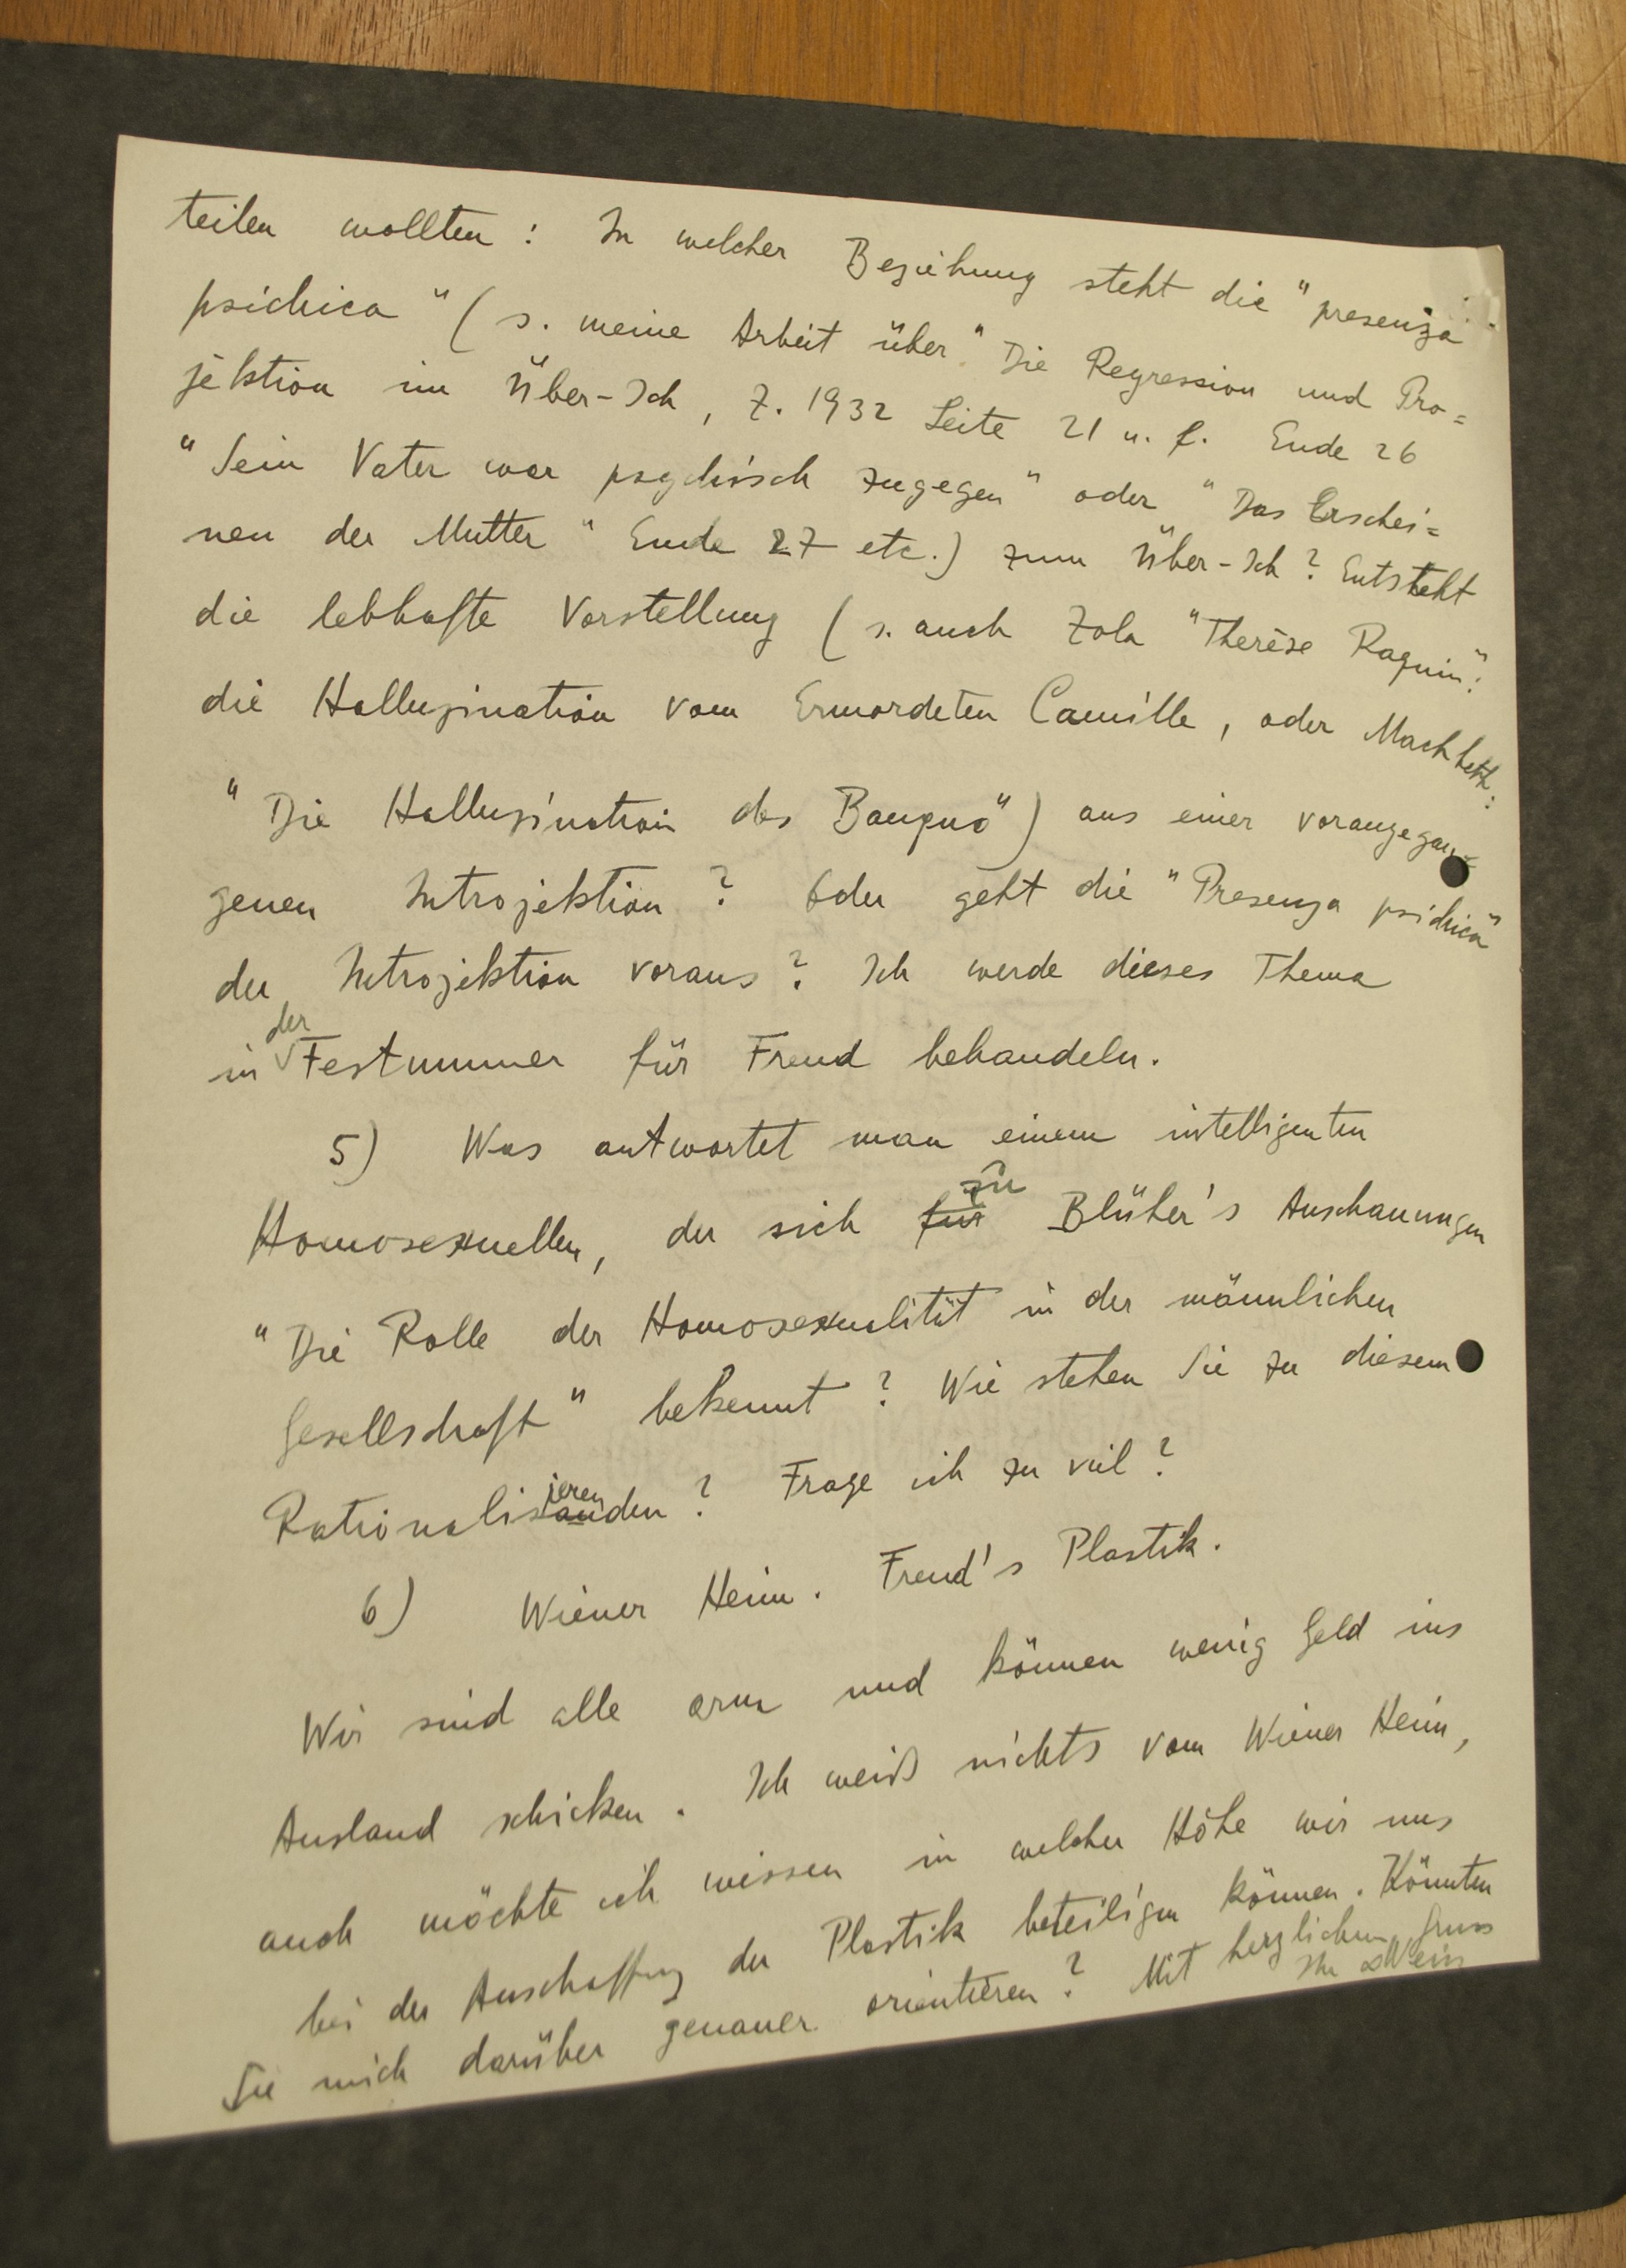 teilen wollten: In welcher Beziehung steht die "presenza
psichica" (s. meine Arbeit über "Die Regression und Pro=
jektion im Über-Ich, Z. 1932 Seite 21 u. f. Ende 26
"Sein Vater war psychisch zugegen" oder "Das Erschei=
nen der Mutter" Ende 27 etc.) zum Über-Ich? Entsteht
die lebhafte Vorstellung (s. auch Zola "Therèse Raquin":
die Halluzination vom Ermordeten Camille, oder Machbeth:
"Die Halluzination des Banquo") aus einer vorangegan=
genen Introjektion? Oder geht die "Presenza psichica"
der Introjektion voraus? Ich werde dieses Thema
in der Festnummer für Freud behandeln.
5) Was antwortet man einem intelligenten
Homosexuellen, der sich für zu Blüher's Anschauungen
"Die Rolle der Homosexualität in der männlichen
Gesellschaft" bekennt? Wie stehen Sie zu diesem
Rationalisierenden? Frage ich zu viel?
6) Wiener Heim. Freud's Plastik.
Wir sind alle arm und können wenig Geld ins
Ausland schicken. Ich weiß nichts vom Wiener Heim,
auch möchte ich wissen in welcher Höhe wir uns
bei der Anschaffung der Plastik beteiligen können. Könnten
Sie mich darüber genauer orientieren? Mit herzlichem Gruss
Ihr Weiss